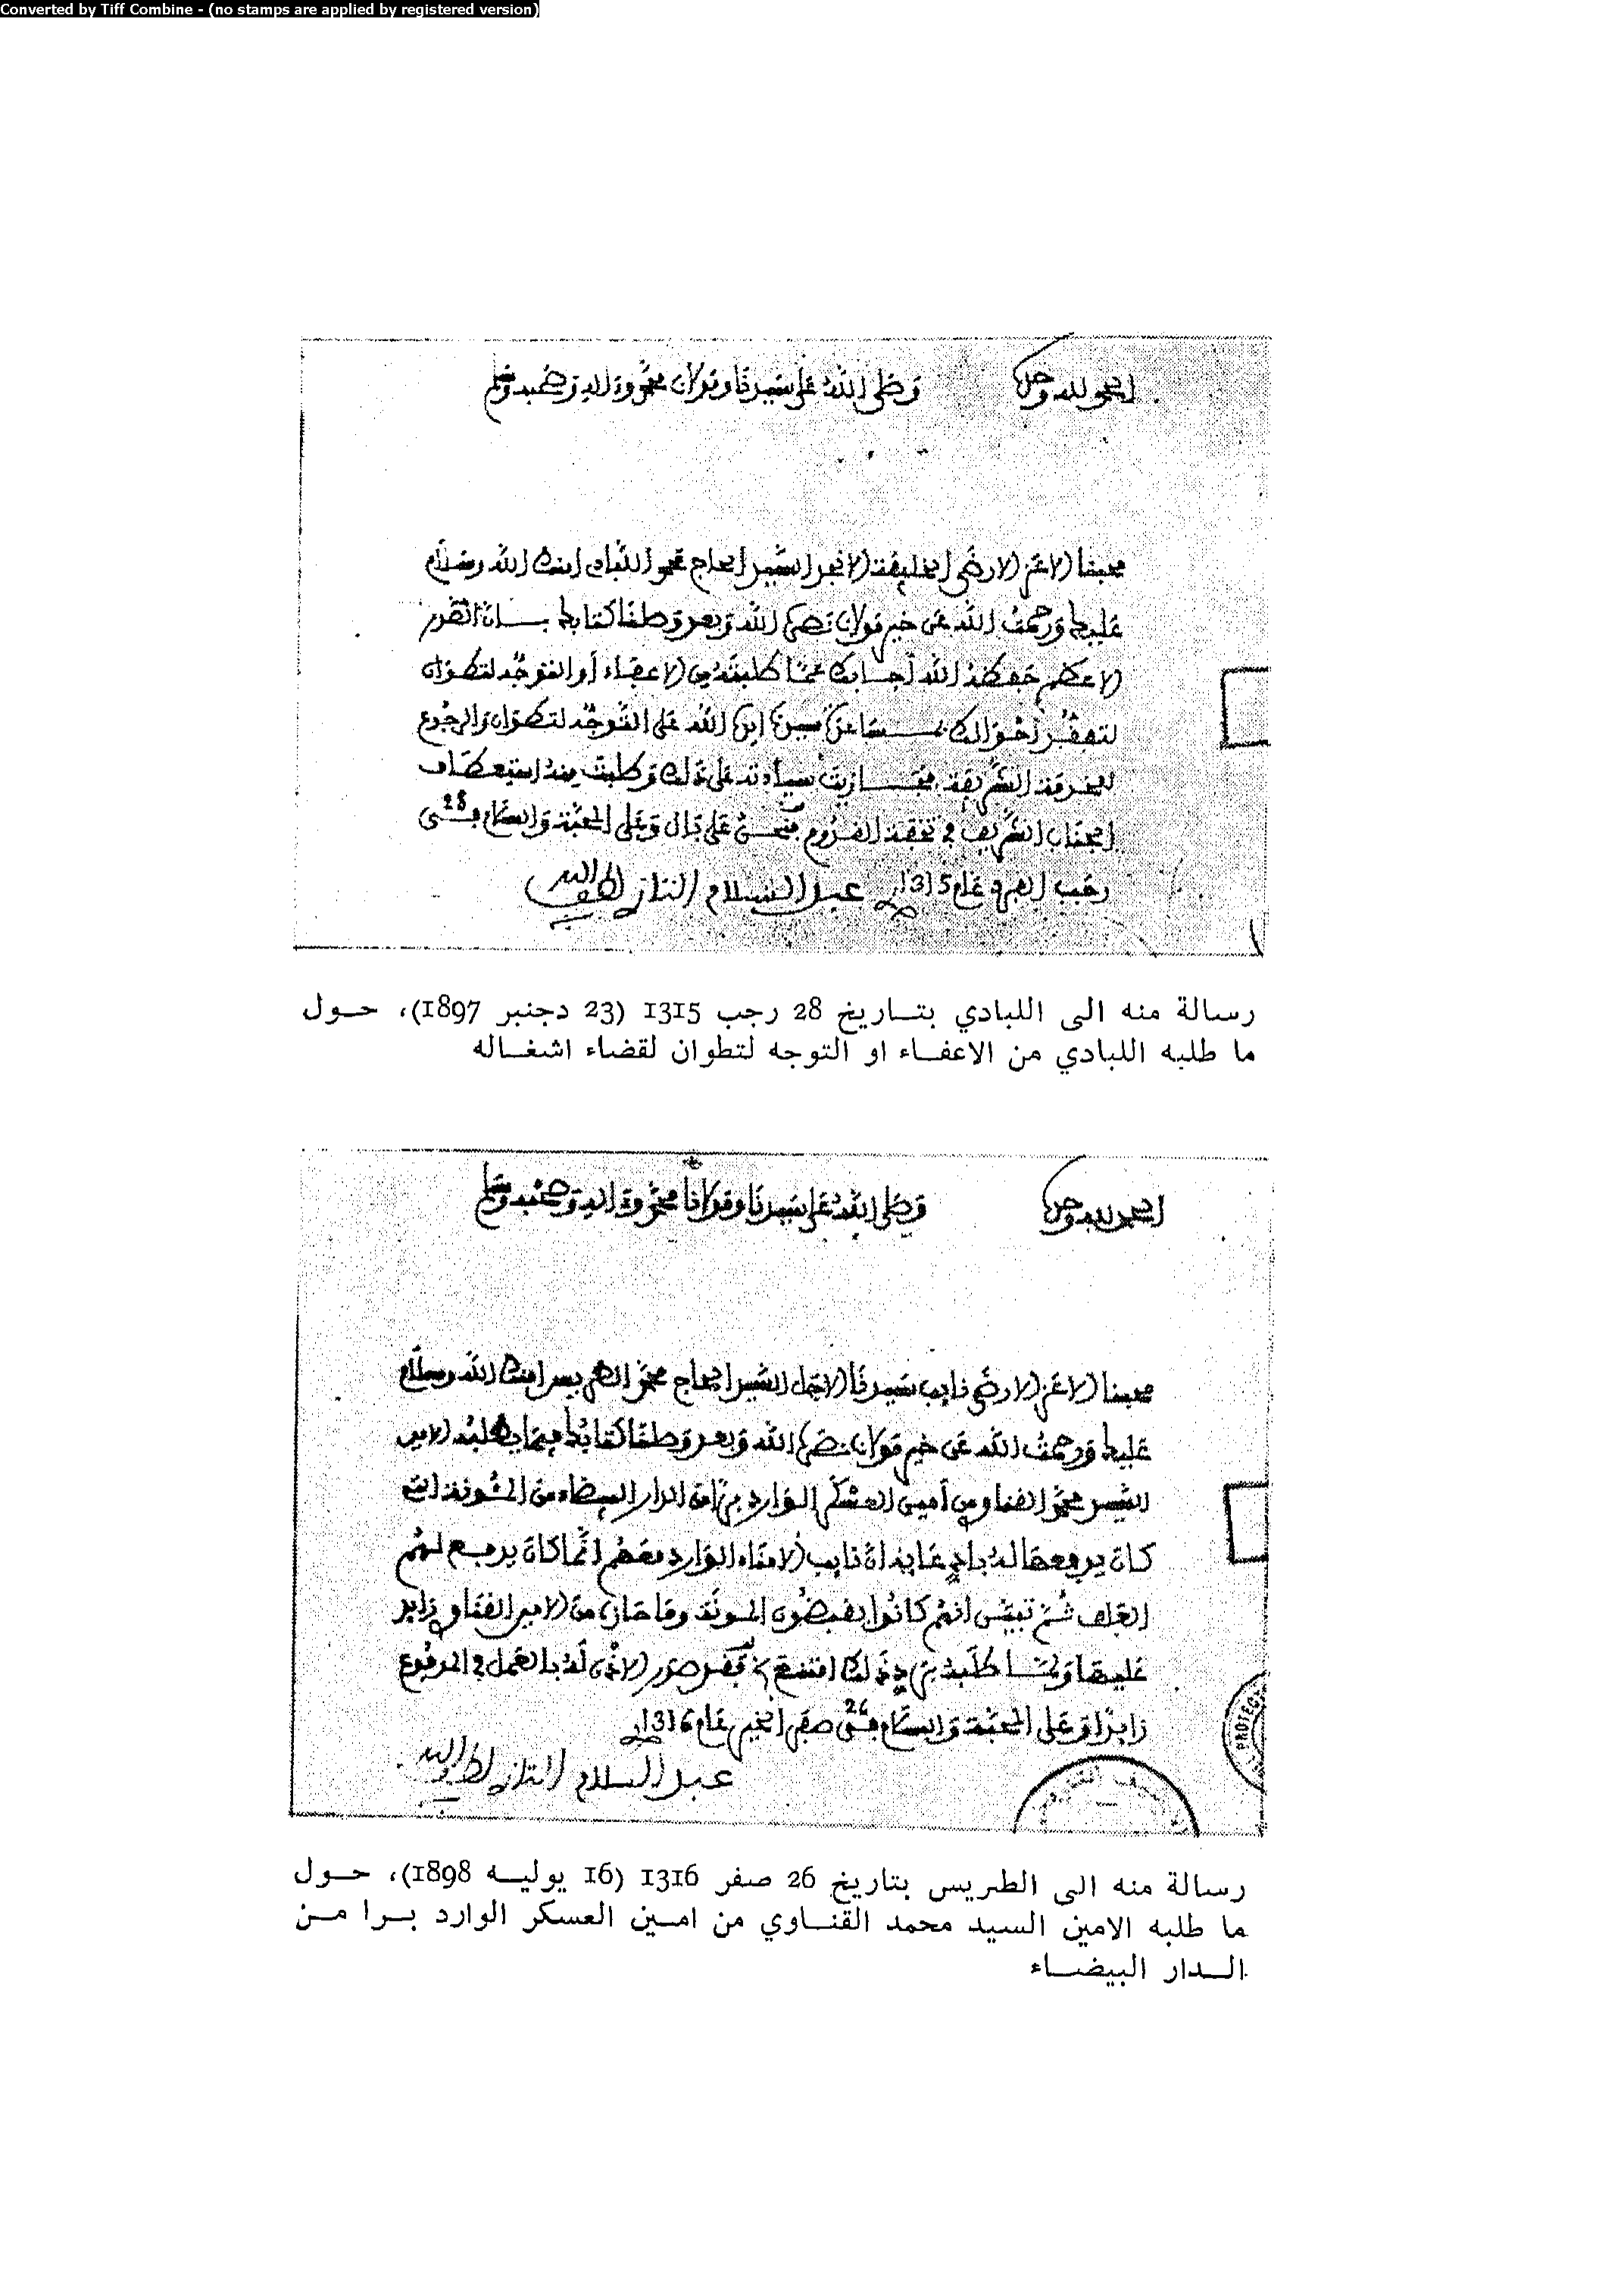 Converted by Tiff Combine - (no stamps are applied by registered version)
الحمد لله وحده وصلى الله على سيدنا ومولانا محمد وءاله وصحبه وسلم
محبنا الاعز الارضى الخليفة السيد الحاج محمد اللبادي امنك الله وسلام
عليك ورحمت الله عن خير مولانا نصره الله وبعد وصلنا كتابك بان الصدر
الاعظم حفظه الله أجابك عما طلبته من الاعفاء أو التوجه لتطوان
لتفقد أحوالك سيدنا ايده الله على التوجه لتطوان والرجوع
للخدمة الشريفة على ذلك وطلبت منه استعطاف
الجناب الشريف في على بال وعلى المحبة والسلام في 28
رجب الفرد عام 1315 عبد السلام التازي لطف الله به
رسالة منه الى اللبادي بتاريخ 28 رجب 1315 (23 دجنبر 1897)، حول
ما طلبه اللبادي من الاعفاء او التوجه لتطوان لقضاء اشغاله
الحمد لله وحده وصلى الله على سيدنا ومولانا محمد وءاله وصحبه وسلم
محبنا الاعز الارضى نايب سيدنا الاجل السيد الحاج محمد الطريس امنك الله وسلام
عليك ورحمت الله عن خير مولانا نصره الله وبعد وصلنا كتابك فيما طلبه الامين
السيد محمد القناوي من أمين العسكر الوارد برا من الدار البيضاء من المونة التي
كان يدفعها له نايب الامناء الوارد معهم انما كان يدفع لهم
العلف ثم تبين انهم كانوا يقبضون المونة وما حازه من الامين القناوي زايد
عليها فقد صدر الامر له بالعمل في المدفوع
زايدا وعلى المحبة والسلام في 26 صفر الخير عام 1316
عبد السلام التازي لطف الله به
PROTEC
رسالة منه الى الطريس بتاريخ 26 صفر 1316 (16 يوليه 1898)، حول
ما طلبه الامين السيد محمد القناوي من امين العسكر الوارد برا من
الدار البيضاء